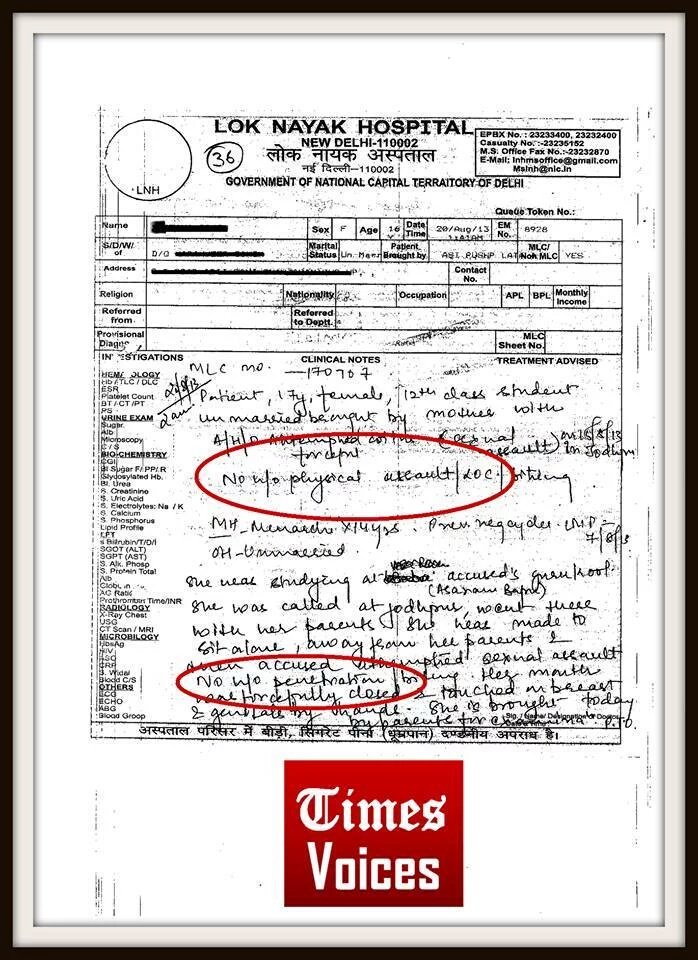 LOK NAYAK HOSPITAL
NEW DELHI-110002
लोक नायक अस्पताल
नई दिल्ली-110002
GOVERNMENT OF NATIONAL CAPITAL TERRAITORY OF DELHI
36
LNH
EPBX No. : 23233400, 23232400
Casualty No.:-23235152
M.S. Office Fax No.:-23232870
E-Mail: lnhmsoffice@gmail.com
Msinh@nic.in
Queue Token No.:
Name Sex F Age 16 Y Date Time 20/Aug/13 EM No. 8928
S/D/W/ of D/O Marital Status Un Marr Patient Brought by ASI PUSHP LATA MLC/ Non MLC YES
Address Contact No.
Religion Nationality Occupation APL BPL Monthly Income
Referred from Referred to Deptt.
Provisional Diagno MLC Sheet No.
INVESTIGATIONS CLINICAL NOTES TREATMENT ADVISED
HEMATOLOGY
Hb / TLC / DLC
ESR
Platelet Count
BT / CT / PT
PS
URINE EXAM
Sugar
Alb
Microscopy
C / S
BIO-CHEMISTRY
Bl Sugar F/ PP/ R
Glycosylated Hb.
Bl. Urea
S. Creatinine
S. Uric Acid
S. Electrolytes: Na / K
S. Calcium
S. Phosphorus
Lipid Profile
LFT
s Bilirubin/T/D/I
SGOT (ALT)
SGPT (AST)
S. Alk. Phosp
S. Protein Total
Alb
AG Ratio
Prothrombin Time/INR
RADIOLOGY
X-Ray Chest
USG
CT Scan / MRI
MICROBIOLOGY
HbsAg
HIV
CRP
S. Widal
Blood C/S
OTHERS
ECG
ECHO
ABG
Blood Group
MLC no. — 170707
Patient, 17y, female, 12th class student
unmarried brought by mother with
A/H/O sexual assault on 15/8/13 in Jodhpur
No h/o physical assault / LOC /
MH- Menarche x 14 yrs. LMP - 7/8/13
OH- Unmarried.
She was studying at accused's gurukool
(Asaram Bapu)
She was called at Jodhpur, went there
with her parents. She was made to
sit alone, away from her parents &
then accused attempted sexual assault
No h/o penetration / Her mouth
was forcefully closed & touched on breast
& genitals by hands. She is brought today
by parents for P.T.O
Sig. / Name/ Designation of Doctor
अस्पताल परिसर में बीड़ी, सिगरेट पीना (धूम्रपान) दण्डनीय अपराध है।
Times
Voices